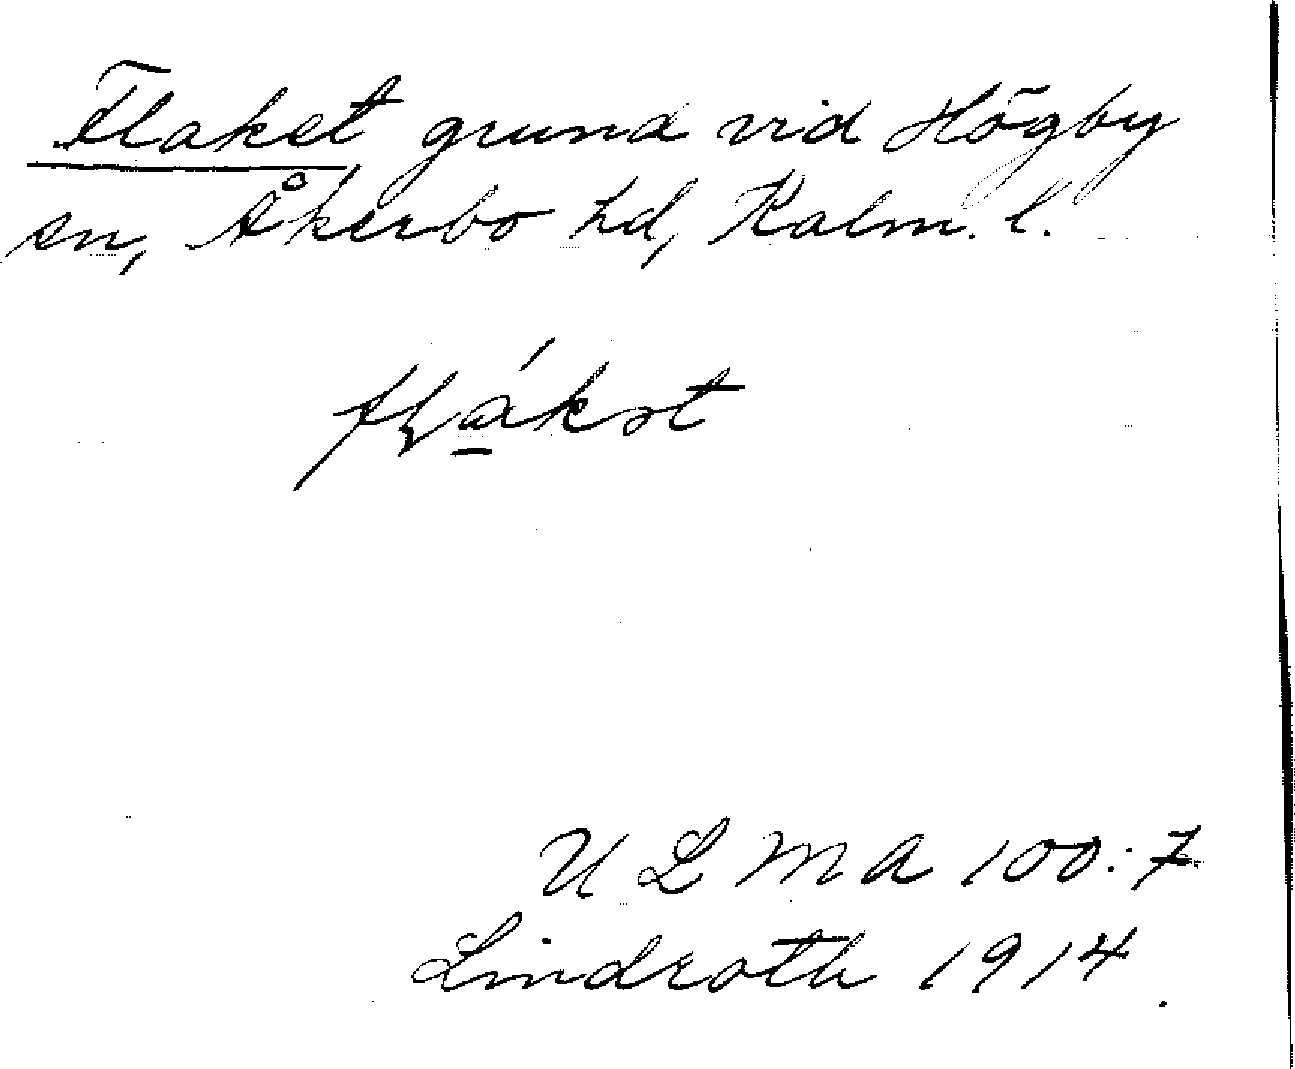 Flaket grund vid Högby
sn, Åkerbo hd, Kalm. l.
flákət
U L M A 100:7
Lindroth 1914.